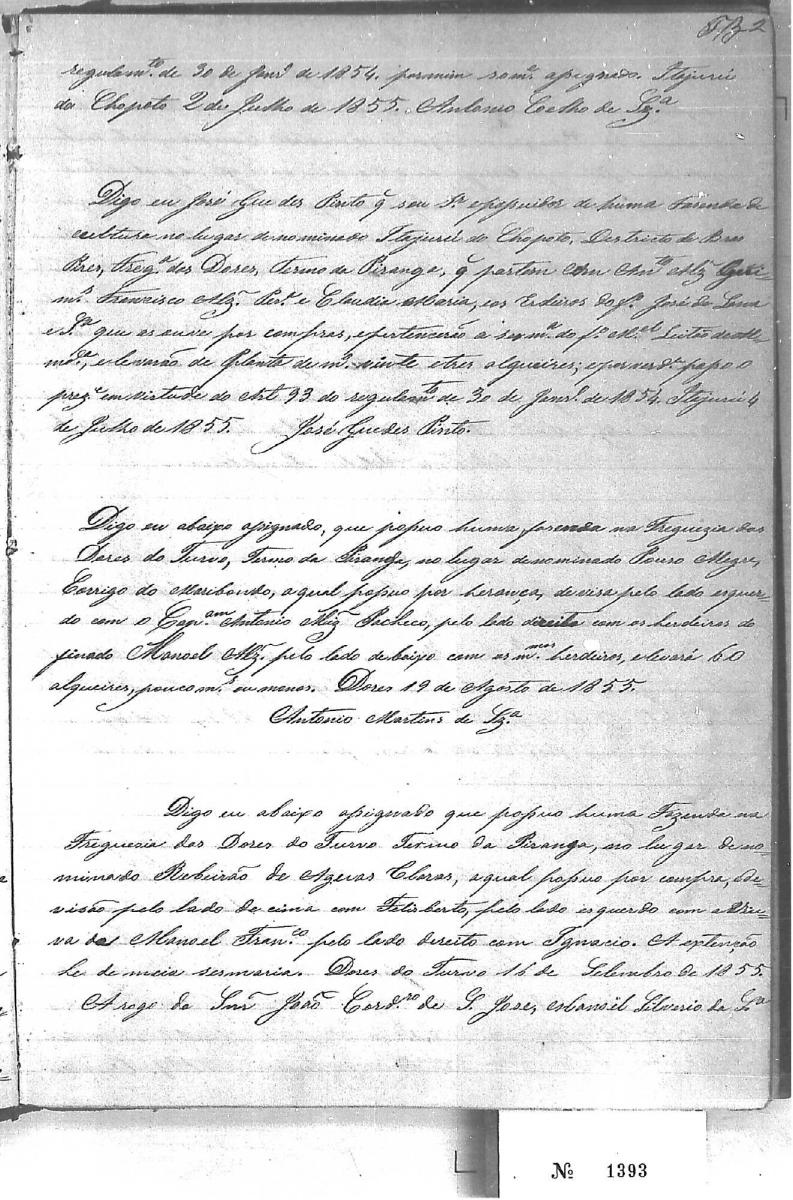 TB2
regulem.to de 30 de Janr.o de 1854. por mim som.e assignado. Itajurú
do Chopoto 2 de Julho de 1855. Antonio Coelho de Sz.a
Digo eu José Guedes Pinto q̃ sou Sr. e possuidor de huma Fazenda de
cultura no lugar denominado Itajurú do Chopoto, Districto de Bras
Pires, Freg.a das Dores, Termo da Piranga, q̃ partem com Ant.o Alz̃
Francisco Alz̃ Per.a e Claudia Maria, e os Erdeiros do f.o José de Lana
e S.a que as ouve por compras, e pertencerão a do f.o M.el Leitão de Al-
md.a, e levarão de Planta de m.o vinte e tres alqueires; e por verd.e passo o
prez.e em virtude do Art 93 do regulem.to de 30 de Janr.o de 1854. Itajurú 4
de Julho de 1855. José Guedes Pinto.
Digo eu abaixo assignado, que possuo huma fazenda na Freguezia das
Dores do Turvo, Termo da Piranga, no lugar denominado Pouso Alegre,
Corrigo do Maribondo, a qual possuo por herança, devisa pelo lado esquer-
do com o Cap.am Antonio Alz̃ Pacheco, pelo lado direito com os herdeiros do
finado Manoel Alz̃. pelo lado debaixo com os m.mos herdeiros, e levará 60
alqueires, pouco m.s ou menos. Dores 19 de Agosto de 1855.
Antonio Martins de Sz.a
Digo eu abaixo assignado que possuo huma Fazenda na
Freguesia das Dores do Turvo Termo da Piranga, no lugar deno-
minado Rebeirão de Agoas Claras, a qual possuo por compra, de-
visão pelo lado de cima com Felisberto, pelo lado esquerdo com a Viu-
va de Manoel Fran.co pelo lado direito com Ignacio. A extenção
he de meia sesmaria. Dores do Turvo 16 de Setembro de 1855.
A rogo do Snr̃ João Card.zo de S. Jose, Manoel Silverio da S.a
No 1393